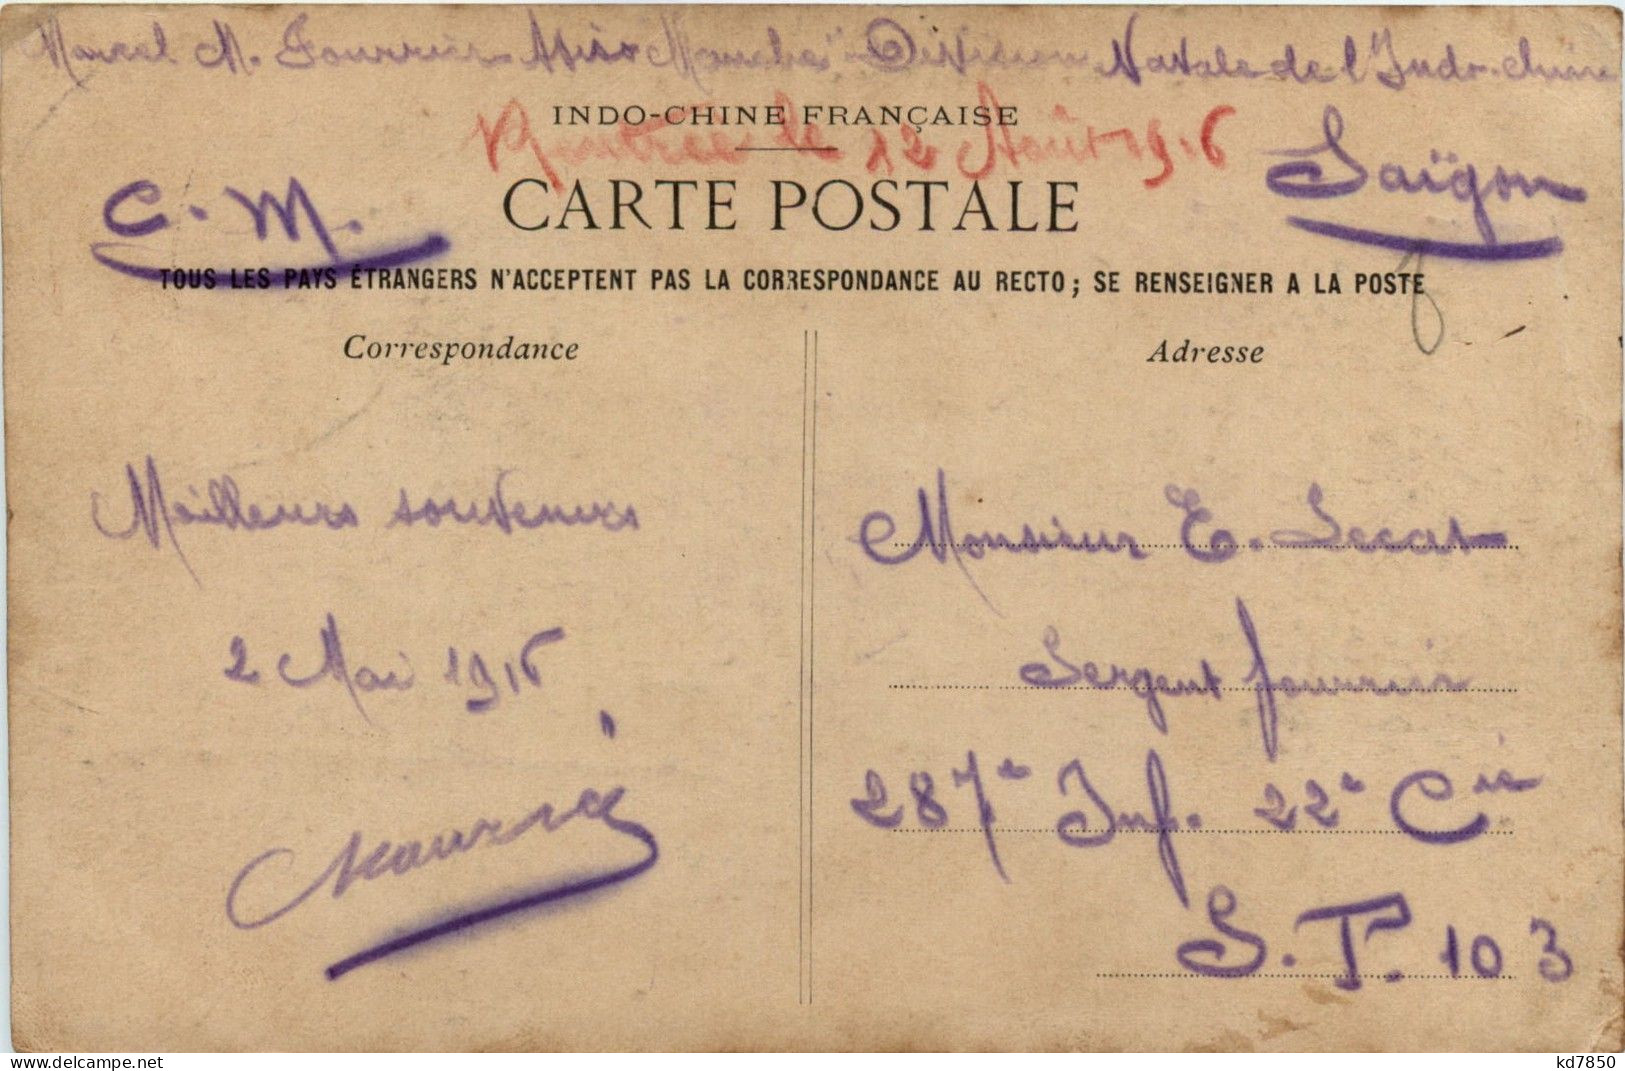 Marcel M. Fourrier Aviso "Manche" Division Navale de l'Indo-chine
INDO-CHINE FRANÇAISE
Rentrée le 12 Août 1916
CARTE POSTALE
C. M.
Saïgon
TOUS LES PAYS ÉTRANGERS N'ACCEPTENT PAS LA CORRESPONDANCE AU RECTO; SE RENSEIGNER A LA POSTE
Correspondance
Meilleurs souvenirs
2 Mai 1916
Adresse
Monsieur E. Lecat
Sergent fourrier
287e Inf. 22e Cie
S.P. 103
delcampe.net
kd7850